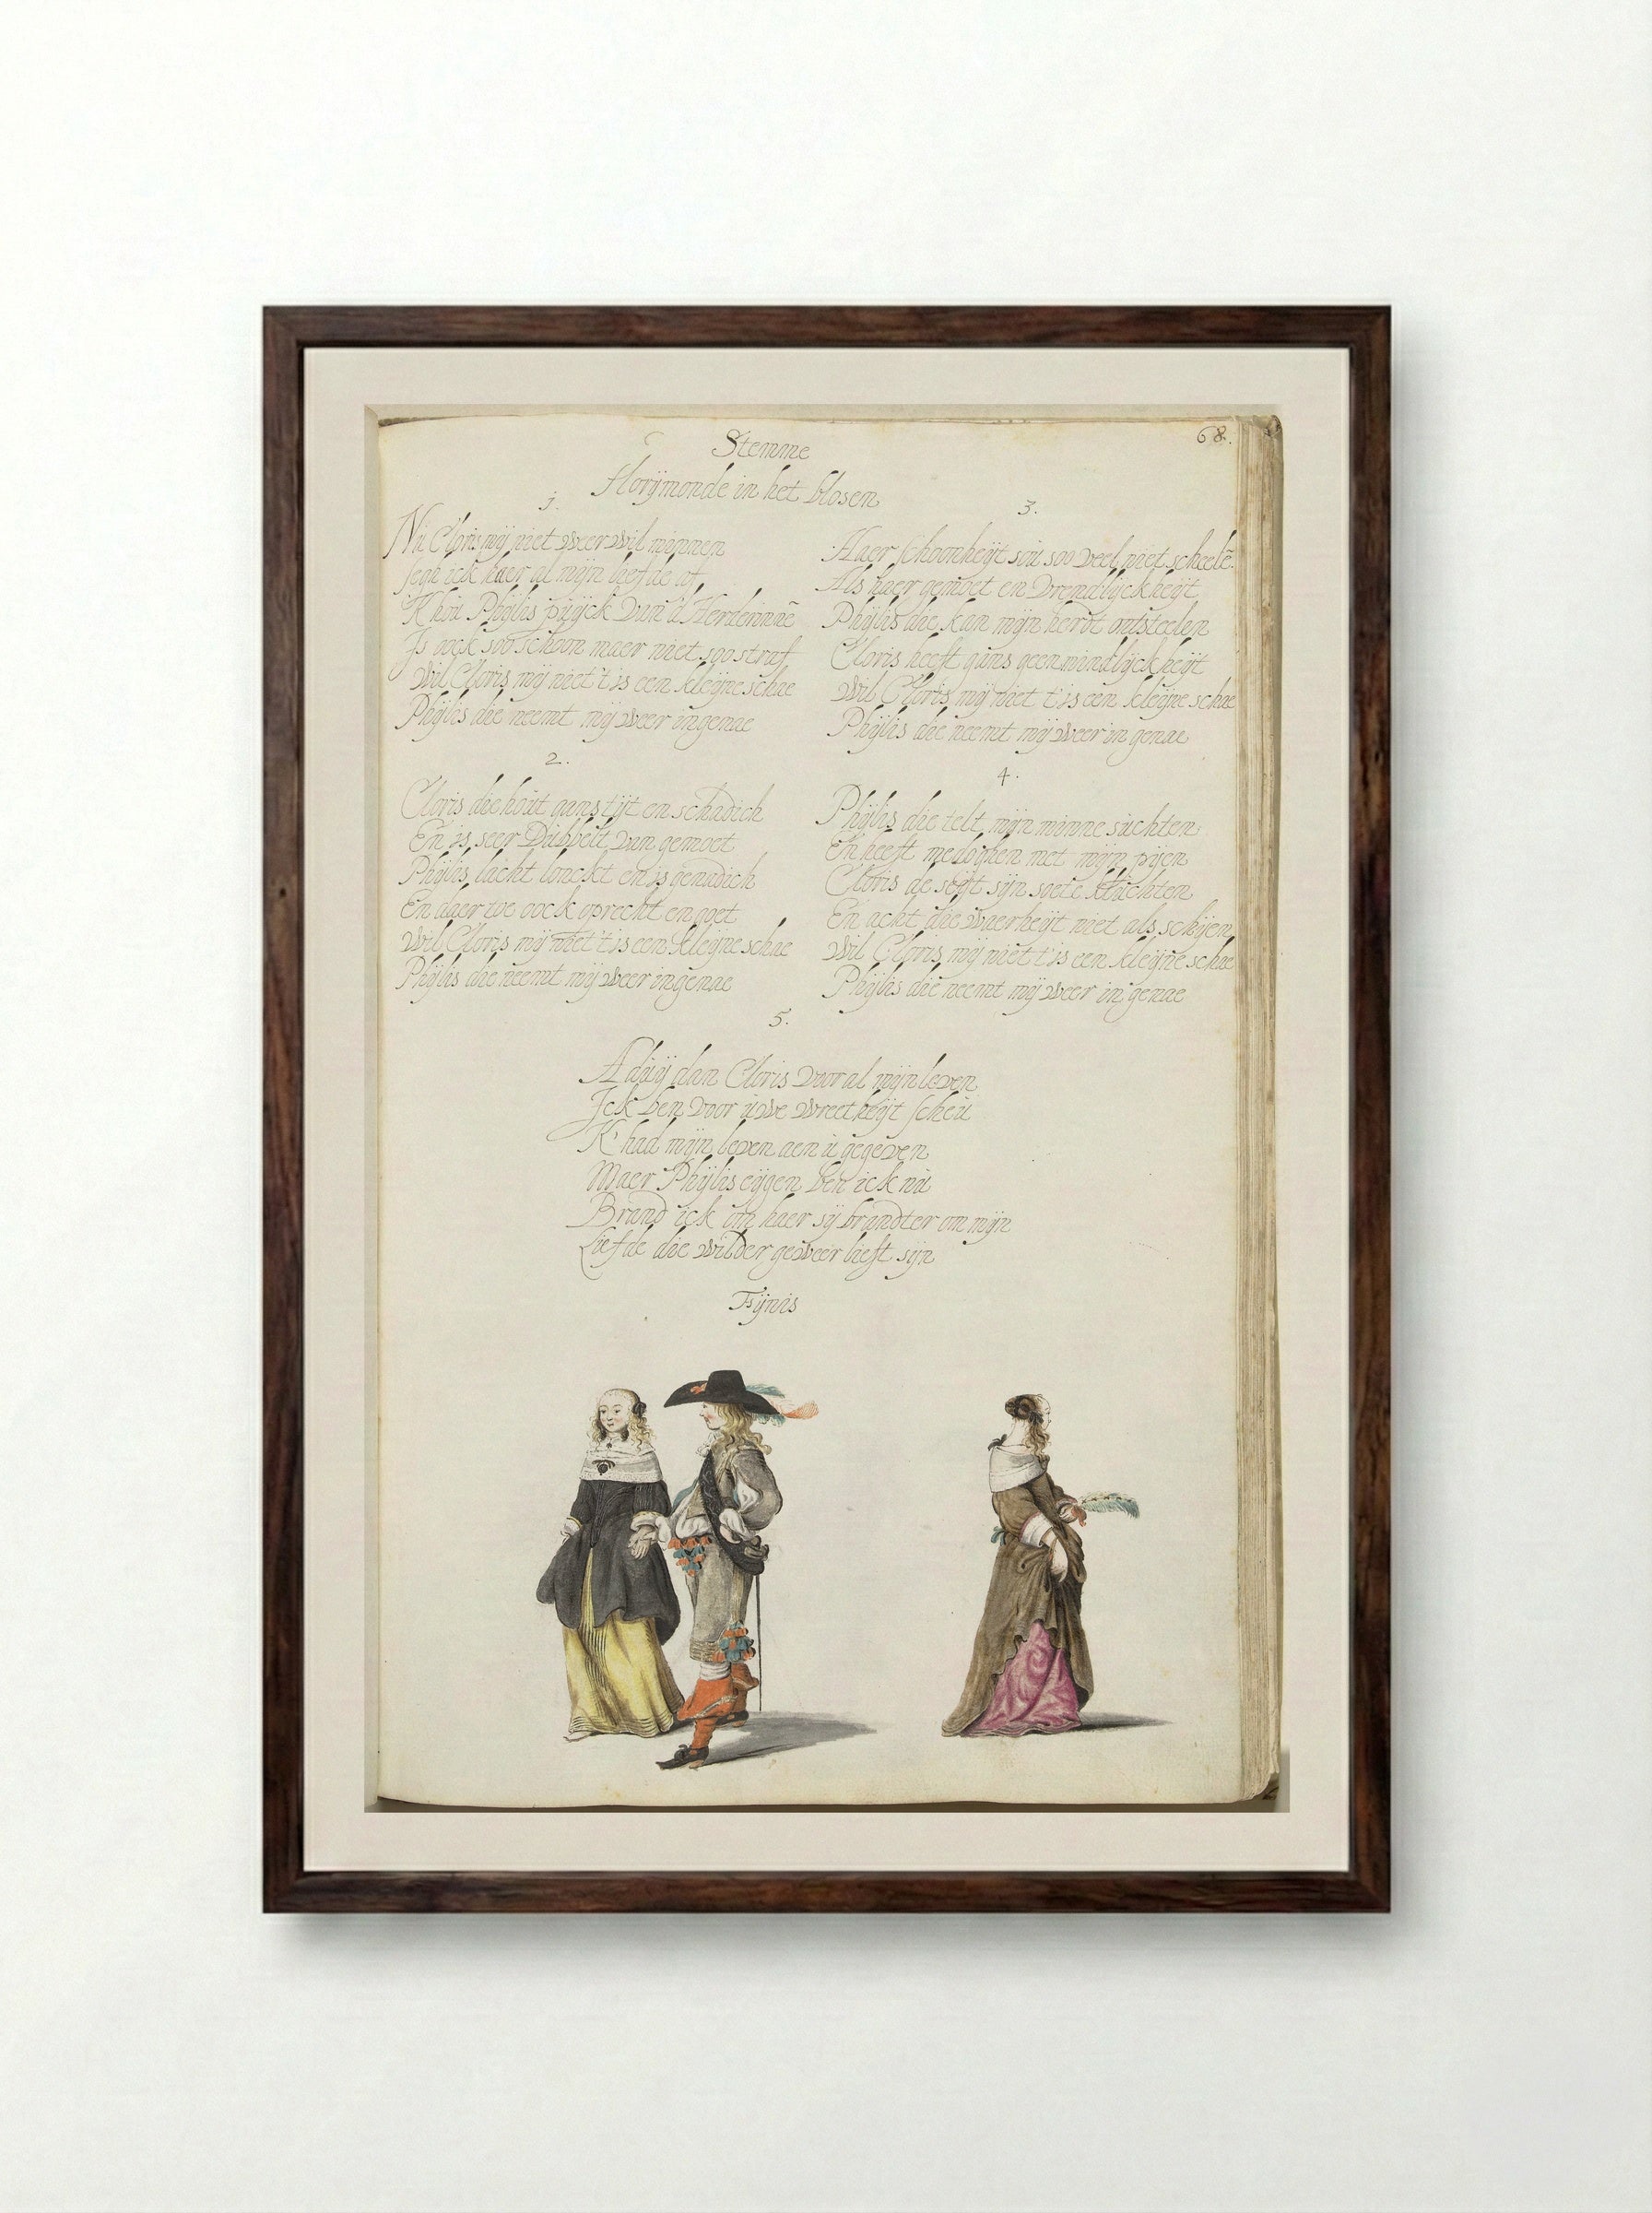 68.
Stemme
Florijmonde in het blosen
1.
Nu Cloris mij niet weer wil minnen
segh ick haer al mijn liefde of
K hou Phijlis puijck van d'Herderinnē
Is oock soo schoon maer niet soo straf
Wil Cloris mij niet t is een kleijne schae
Phijlis die neemt mij weer in genae
2.
Cloris die hout gans tijt en schadich
En is seer Dubbelt van gemoet
Phijlis lacht lonckt en is genadich
En daer toe oock oprecht en goet
Wil Cloris mij niet t is een kleijne schae
Phijlis die neemt mij weer in genae
3.
Haer schoonheijt sou soo veel niet scheelē
Als haer gemoet en vrendlijckheijt
Phijlis die kan mijn herdt ontsteelen
Cloris heeft gans geen mindlijckheijt
Wil Cloris mij niet t is een kleijne schae
Phijlis die neemt mij weer in genae
4.
Phijlis die telt mijn minne suchten
En heeft medoghen met mijn pijen
Cloris de seijt sijn soete kluchten
En acht die waerheijt niet als schijen
Wil Cloris mij niet t is een kleijne schae
Phijlis die neemt mij weer in genae
5.
Aduij dan Cloris voor al mijn leven
Ick ben voor uwe wreetheijt scheu
K' had mijn leven aen u gegeven
Maer Phijlis eijgen ben ick nu
Brand ick om haer sij brandter om mijn
Liefde die wilder geweer lieft sijn
Fijnis